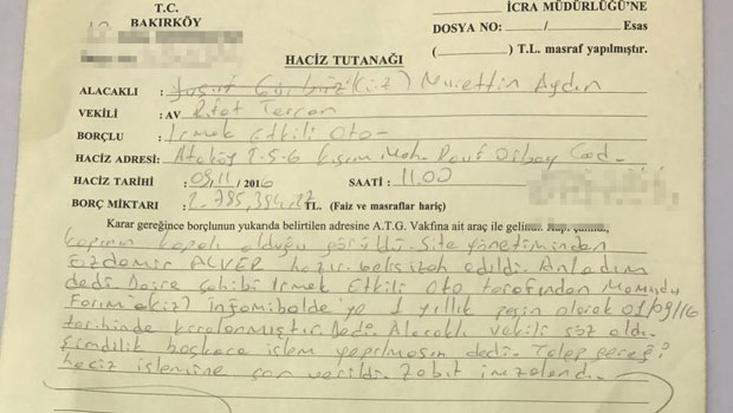 T.C.
BAKIRKÖY
İCRA MÜDÜRLÜĞÜ'NE
DOSYA NO: / Esas
HACİZ TUTANAĞI
( ) T.L. masraf yapılmıştır.
ALACAKLI : Nurettin Aydın
VEKİLİ : AV Rıfat Tercan
BORÇLU : Irmek Etkili Oto-
HACİZ ADRESİ: Ataköy 2-5-6 Kısım Mah. Rauf Orbay Cad.
HACİZ TARİHİ : 09/11/2016 SAATİ : 11.00
BORÇ MİKTARI : 2.795,394.27 TL. (Faiz ve masraflar hariç)
Karar gereğince borçlunun yukarıda belirtilen adresine A.T.G. Vakfına ait araç ile gelindi. Kapı çalındı,
kapının kapalı olduğu görüldü. Site yönetiminden
Özdemir ALVER hazır. belisizah edildi. Anladım
dedi. Daire Sahibi Irmek Etkili Oto tarafından
1 yıllık peşin olarak 01/09/16
tarihinde kiralanmıştır. Dedi. Alacaklı vekili söz aldı.
şimdilik başkaca işlem yapılmasın dedi. Talep gereği
haciz işlemine son verildi. Zabıt imzalandı.